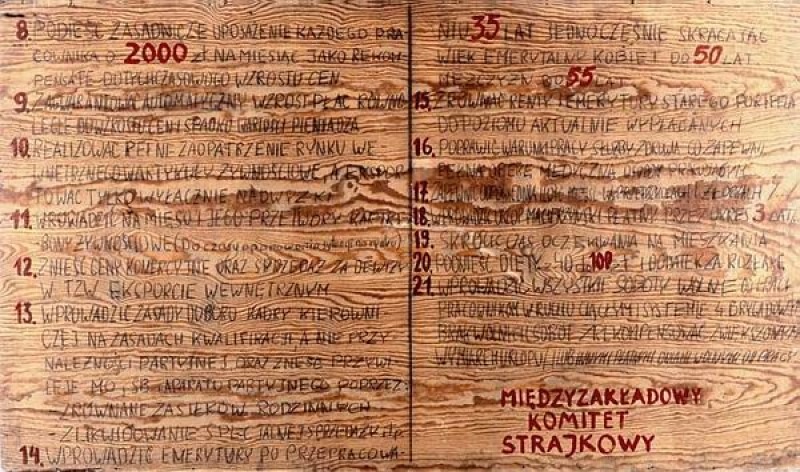 8. PODNIEŚĆ ZASADNICZE UPOSAŻENIE KAŻDEGO PRA-
COWNIKA O 2000 zł NA MIESIĄC JAKO REKOM-
PENSATĘ DOTYCHCZASOWEGO WZROSTU CEN.
9. ZAGWARANTOWAĆ AUTOMATYCZNY WZROST PŁAC RÓWNO-
LEGLE DO WZROSTU CEN I SPADKU WARTOŚCI PIENIĄDZA
10. REALIZOWAĆ PEŁNE ZAOPATRZENIE RYNKU WE-
WNĘTRZNEGO W ARTYKUŁY ŻYWNOŚCIOWE, A EKSPOR-
TOWAĆ TYLKO I WYŁĄCZNIE NADWYŻKI
11. WPROWADZIĆ NA MIĘSO I JEGO PRZETWORY KARTKI-
BONY ŻYWNOŚCIOWE (Do czasu opanowania sytuacji na rynku)
12. ZNIEŚĆ CENY KOMERCYJNE ORAZ SPRZEDAŻ ZA DEWIZY
W TZW. EKSPORCIE WEWNĘTRZNYM
13. WPROWADZIĆ ZASADY DOBORU KADRY KIEROWNI-
CZEJ NA ZASADACH KWALIFIKACJI A NIE PRZY-
NALEŻNOŚCI PARTYJNEJ ORAZ ZNIEŚĆ PRZYWI-
LEJE MO, SB, APARATU PARTYJNEGO POPRZEZ:
- ZRÓWNANIE ZASIŁKÓW RODZINNYCH
- ZLIKWIDOWANIE SPECJALNEJ SPRZEDAŻY itp.
14. WPROWADZIĆ EMERYTURY PO PRZEPRACOWA-
NIU 35 LAT JEDNOCZEŚNIE SKRACAJĄC
WIEK EMERYTALNY KOBIET DO 50 LAT
MĘŻCZYZN DO 55 LAT
15. ZRÓWNAĆ RENTY I EMERYTURY STAREGO PORTFELA
DO POZIOMU AKTUALNIE WYPŁACANYCH
16. POPRAWIĆ WARUNKI PRACY SŁUŻBY ZDROWIA CO ZAPEWNI
PEŁNĄ OPIEKĘ MEDYCZNĄ OSOBOM PRACUJĄCYM
17. ZAPEWNIĆ ODPOWIEDNIĄ ILOŚĆ MIEJSC W PRZEDSZKOLACH I ŻŁOBKACH
18. WPROWADZIĆ URLOP MACIERZYŃSKI PŁATNY PRZEZ OKRES 3 LAT.
19. SKRÓCIĆ CZAS OCZEKIWANIA NA MIESZKANIA
20. PODNIEŚĆ DIETY Z 40 DO 100 zł I DODATEK ZA ROZŁĄKĘ
21. WPROWADZIĆ WSZYSTKIE SOBOTY WOLNE OD PRACY
PRACOWNIKOM W RUCHU CIĄGŁYM I SYSTEMIE 4 BRYGADOWYM
BRAK WOLNYCH SOBÓT ZREKOMPENSOWAĆ ZWIĘKSZONYM
WYMIAREM URLOPU LUB INNYMI PŁATNYMI DNIAMI WOLNYMI OD PRACY
MIĘDZYZAKŁADOWY
KOMITET
STRAJKOWY